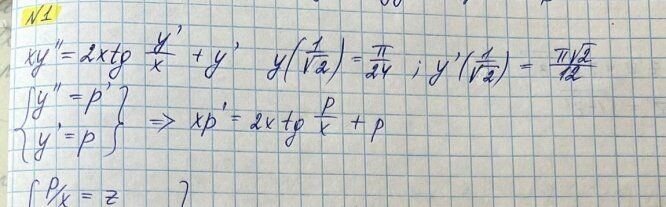 N1
xy" = 2x tg y'/x + y' y(1/√2) = π/24 ; y'(1/√2) = π√2/12
{y" = p'
{y' = p} => xp' = 2x tg p/x + p
{p/x = z